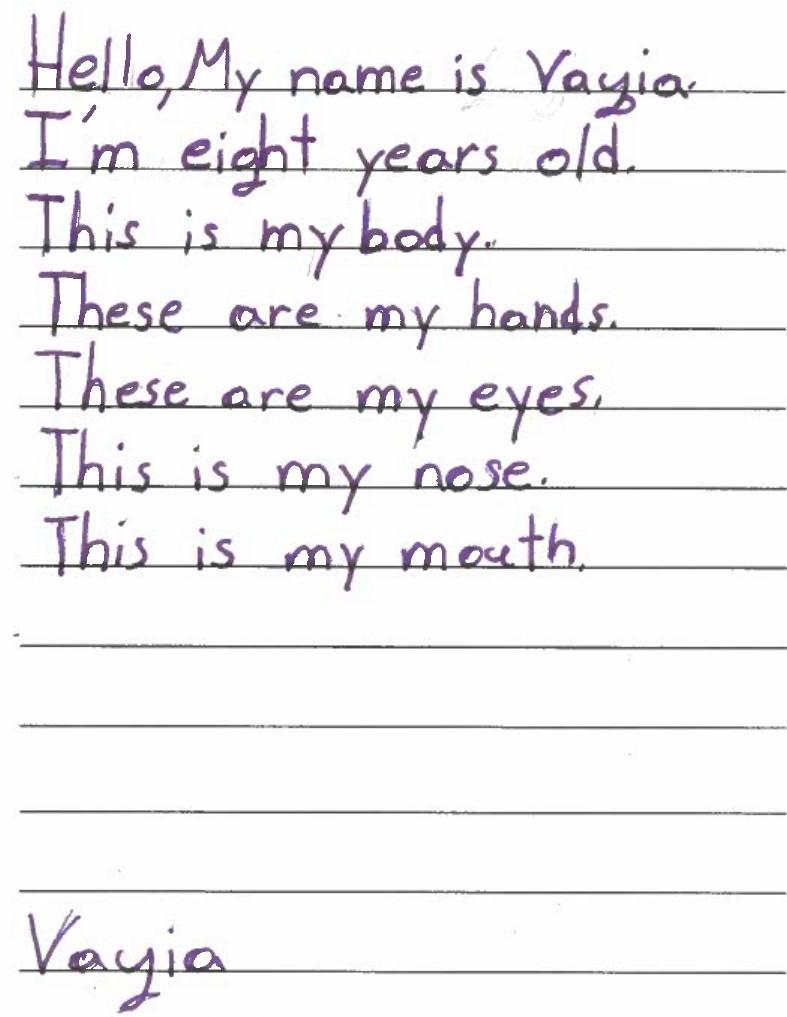 Hello, My name is Vayia.
I'm eight years old.
This is my body.
These are my hands.
These are my eyes.
This is my nose.
This is my mouth.
Vayia